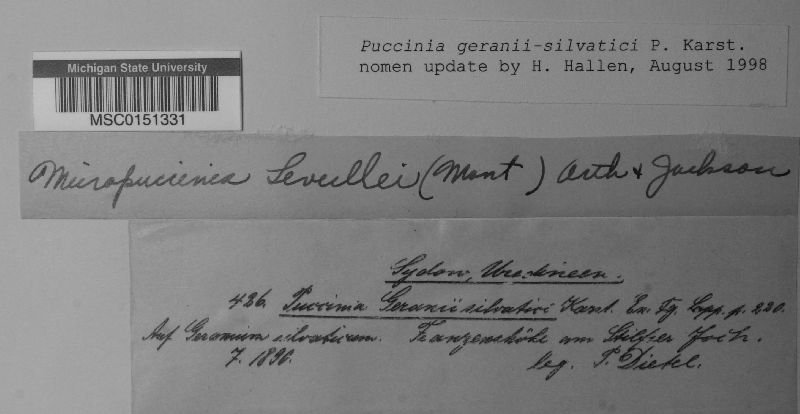 Puccinia geranii-silvatici P. Karst.
nomen update by H. Hallen, August 1998
Michigan State University
MSC0151331
Micropuccinia Leveillei (Mont) Arth & Jackson
Sydow, Uredineen.
426. Puccinia Geranii silvatici Karst. En. Fg. Lapp. p. 220.
Auf Geranium silvaticum. Franzenshöhe am Stilfser Joch.
7. 1890. leg. P. Dietel.